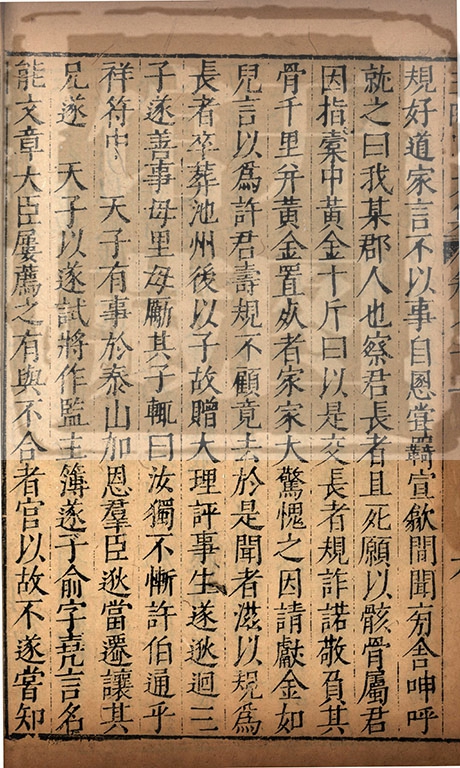 規好道家言不以事自慁嘗羇宣歙間聞旁舍呻呼
就之曰我某郡人也察君長者且死願以骸骨屬君
因指橐中黃金十斤曰以是交長者規詐諾敬負其
骨千里并黃金置死者家家大驚愧之因請獻金如
兒言以為許君壽規不顧竟去於是聞者滋以規為
長者卒葬池州後以子故贈大理評事生遂逖迥三
子遂善事母里母勵其子輒曰汝獨不慚許伯通乎
祥符中 天子有事於泰山加恩羣臣逖當遷讓其
兄遂 天子以遂試將作監主簿遂子俞字堯言名
能文章大臣屢薦之有與不合者官以故不遂嘗知